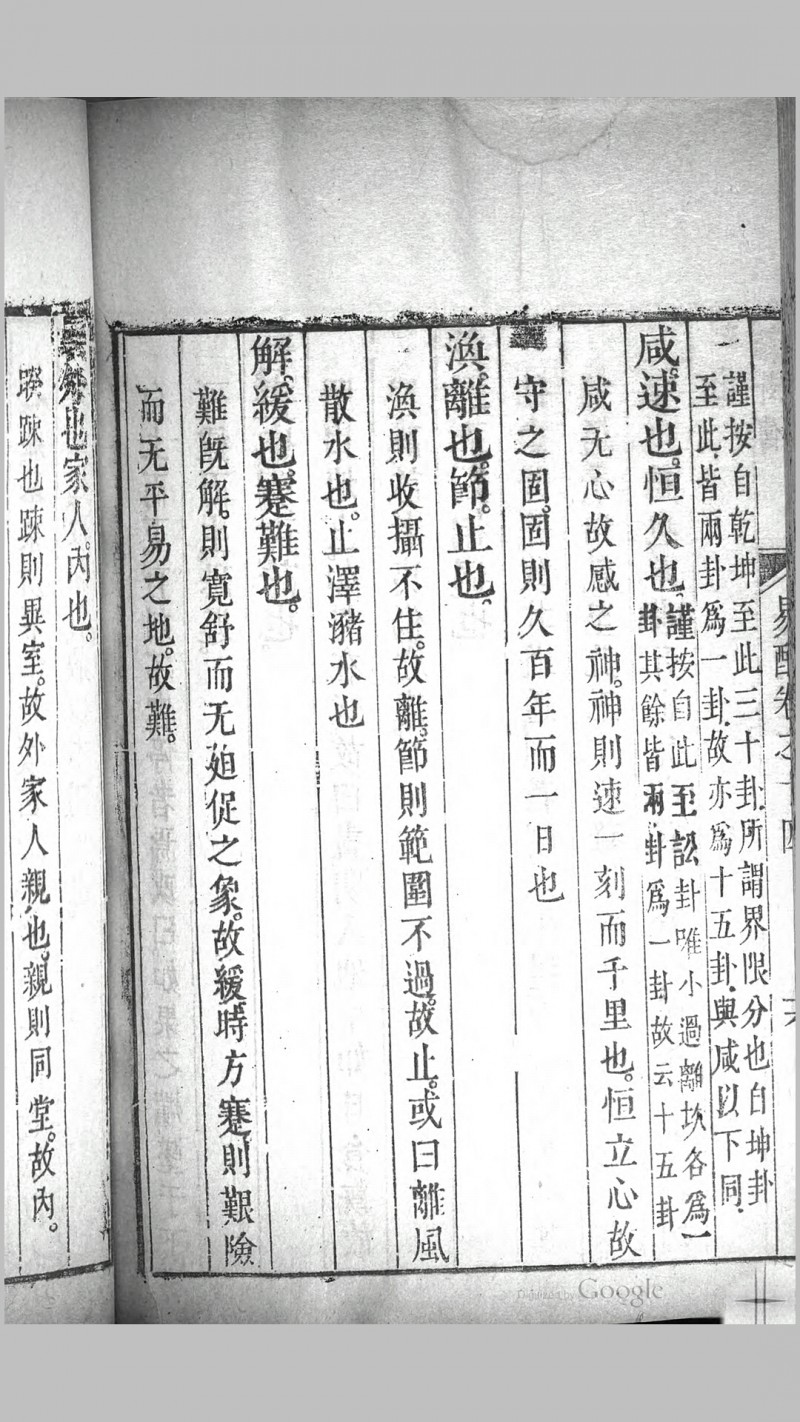 易酌卷之十四
謹按自乾坤至此三十卦所謂界限分也自坤卦
至此皆兩卦爲一卦故亦爲十五卦與咸以下同
咸。速也。恒久也。
謹按自此至訟卦唯小過離坎各爲一
卦其餘皆兩卦爲一卦故云十五卦
咸无心故感之神。神則速一刻而千里也。恒立心故
守之固。固則久百年而一日也
渙。離也。節。止也。
渙則收攝不住。故離。節則範圍不過。故止。或曰離風
散水也。止澤瀦水也
解。緩也。蹇難也。
難旣解。則寬舒而无廹促之象。故緩。時方蹇。則艱險
而无平易之地。故難。
外也家人。內也。
睽踈也踈則異室。故外家人親也。親則同堂。故內。
Digitized by Google